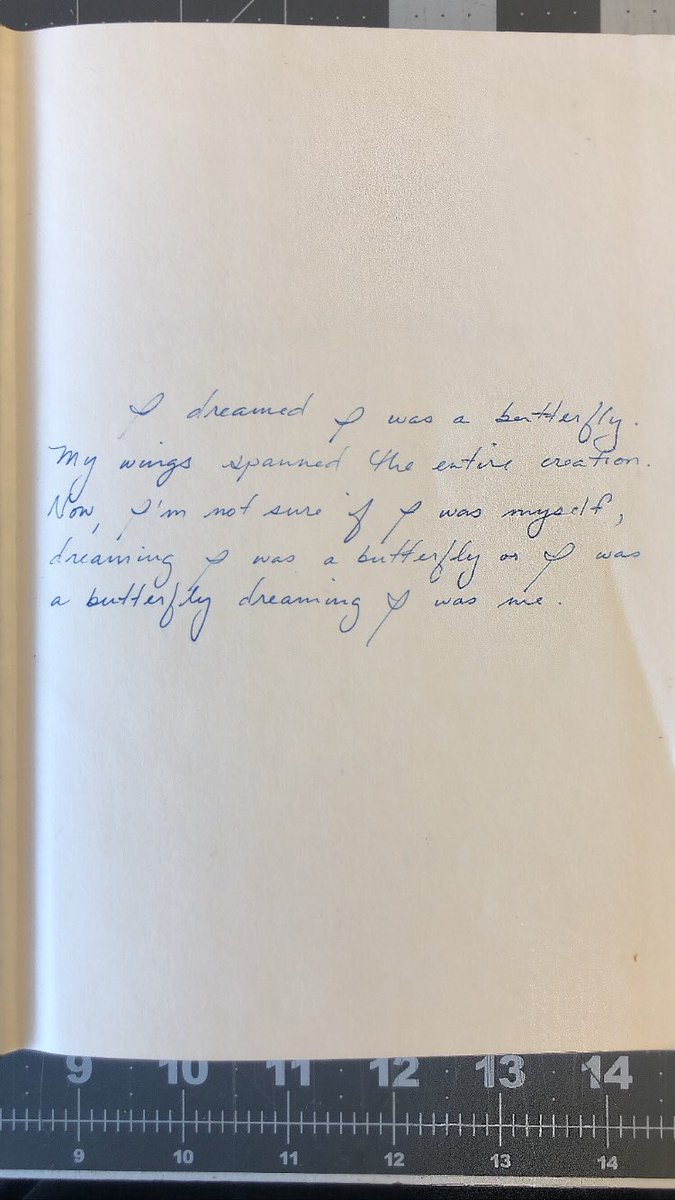 I dreamed I was a butterfly.
My wings spanned the entire creation.
Now, I'm not sure if I was myself,
dreaming I was a butterfly or I was
a butterfly dreaming I was me.
9 10 11 12 13 14
9 10 11 12 13 14